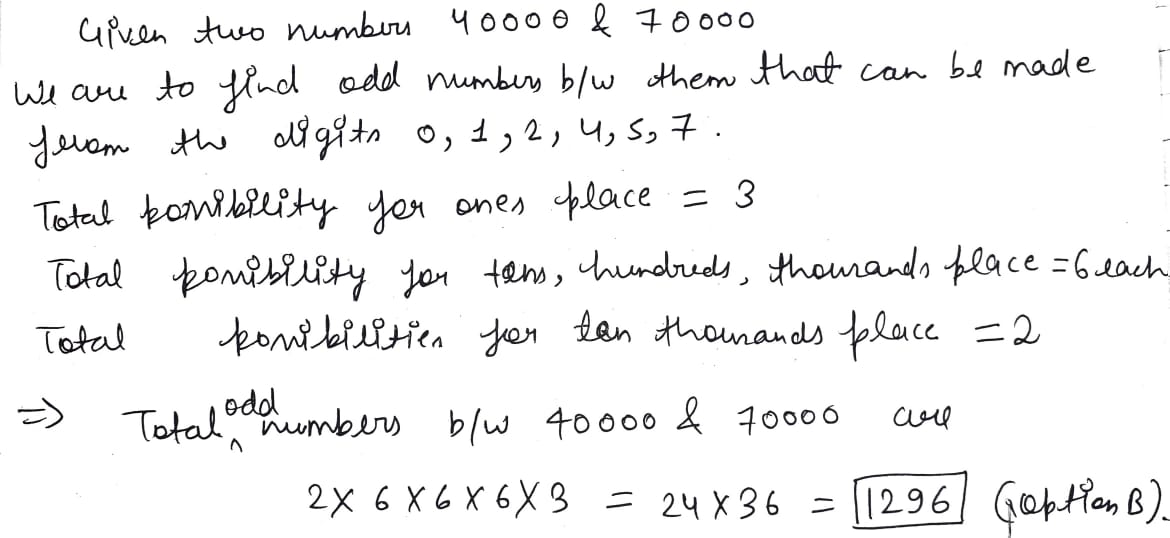 Given two numbers 40000 & 70000
We are to find odd numbers b/w them that can be made
from the digits 0, 1, 2, 4, 5, 7.
Total possibility for ones place = 3
Total possibility for tens, hundreds, thousands place = 6 each
Total possibilities for ten thousands place = 2
=> Total odd numbers b/w 40000 & 70000 are
2 X 6 X 6 X 6 X 3 = 24 X 36 = 1296 (option B).